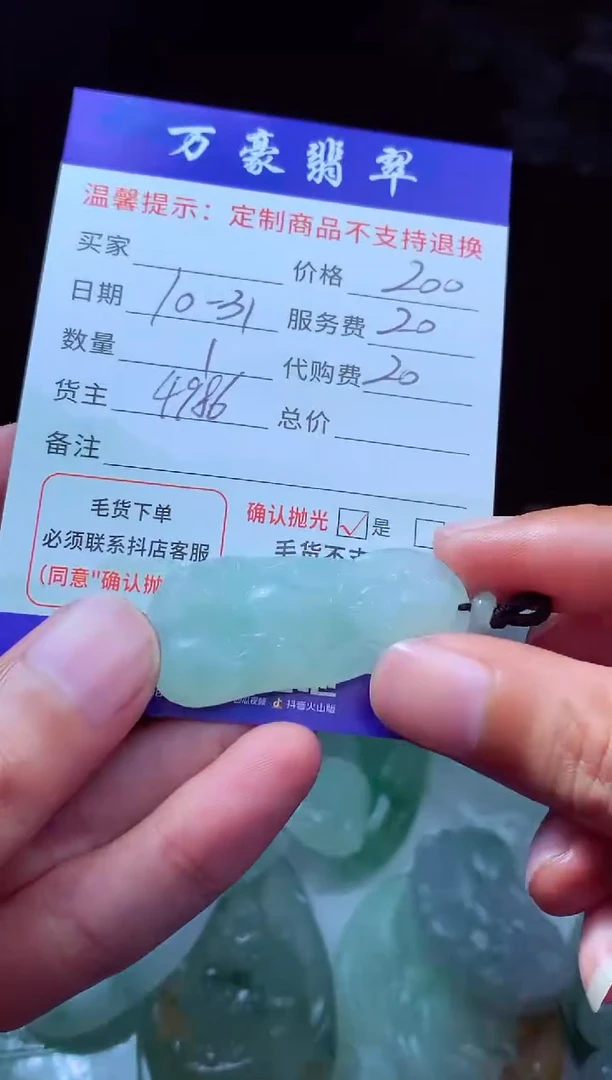 万豪翡翠
温馨提示：定制商品不支持退换
买家 价格 200
日期 10-31 服务费 20
数量 1 代购费 20
货主 4986 总价
备注
毛货下单
必须联系抖店客服
(同意"确认抛
确认抛光 是
毛货不支
抖音火山版